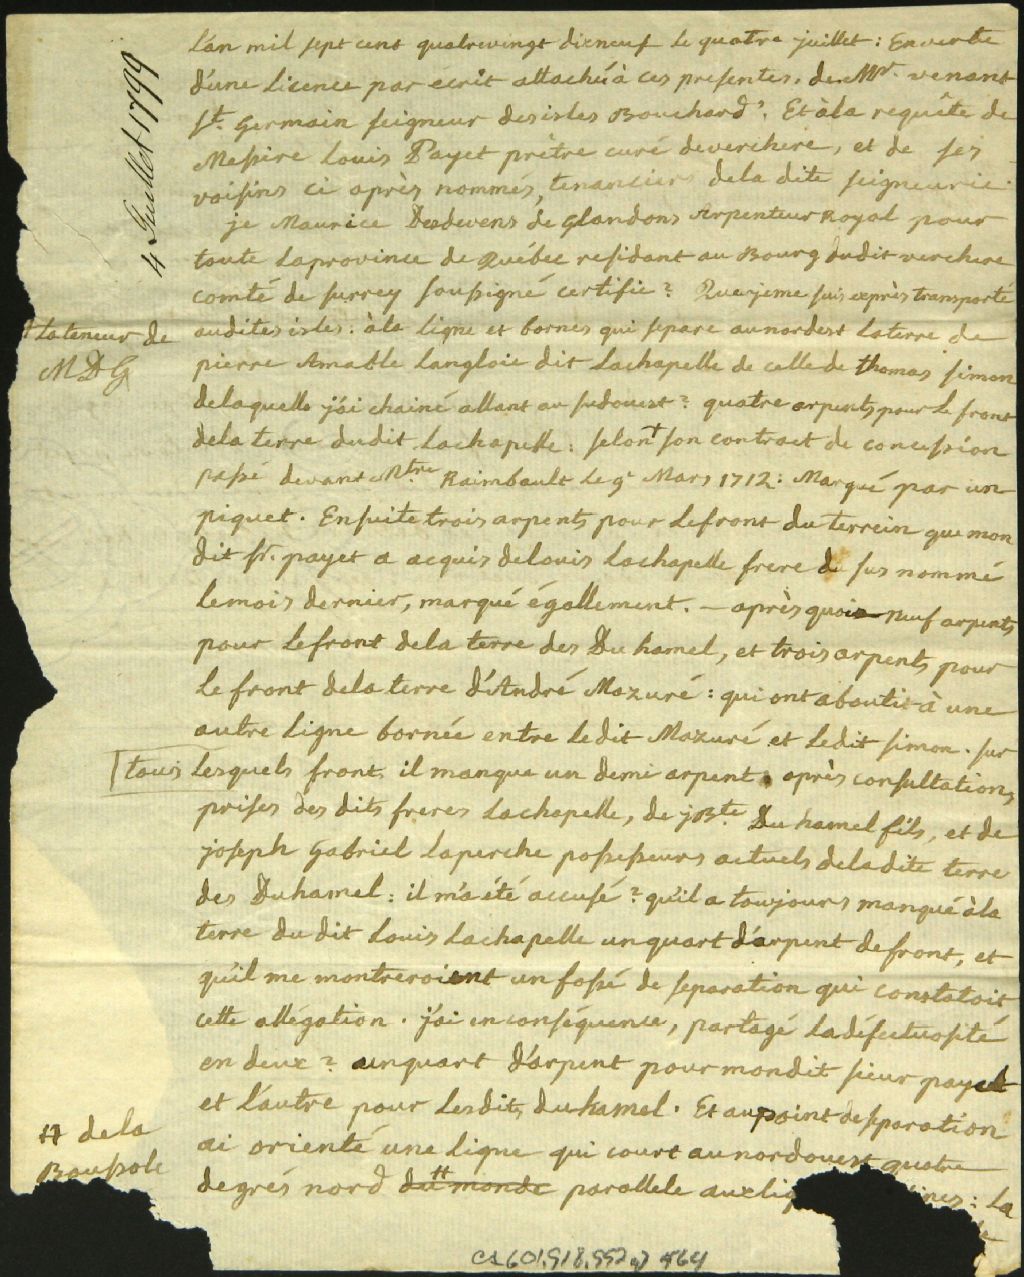 4 Juillet 1799
L'an mil sept cent quatrevingt dixneuf le quatre juillet: En vertu
d'une licence par écrit attachée à ces presentes, de Mr. venant
St. Germain seigneur des isles Bouchard?. Et à la requête de
Messire Louis Payet prêtre curé de verchere, et de ses
voisins ci après nommés, tenanciers de la dite seigneurie.
je Maurice Desdevens de Glandons Arpenteur Royal pour
toute la province de Québec residant au Bourg dudit verchere
comté de surrey soussigné certifie? Que je me suis exprès transporté
auxdites isles: à la ligne et bornes qui separe au nordest la terre de
† la teneur de
M D G
pierre Amable Langlois dit Lachapelle de celle de thomas simon
de laquelle j'ai chainé allant au sudouest? quatre arpents pour le front
de la terre dudit Lachapelle: selon † son contract de concession
passé devant Mtre Raimbault le 9e Mars 1712: Marqué par un
piquet. Ensuite trois arpents pour le front du terrein que mon
dit sr. payet a acquis de louis Lachapelle frere du sus nommé
le mois dernier, marqué égallement. — après quoi neuf arpents
pour le front de la terre des Duhamel, et trois arpents pour
le front de la terre d'André Mazuré: qui ont aboutis à une
autre ligne bornée entre ledit Mazuré et ledit simon. sur
tous lesquels fronts il manque un demi arpent. après consultations
prises des dits freres Lachapelle, de jBte Duhamel fils, et de
joseph Gabriel Laperche possesseurs actuels de la dite terre
des Duhamel: il m'a été accusé? qu'il a toujours manqué à la
terre du dit Louis Lachapelle un quart d'arpent de front, et
qu'il me montreroient un fossé de separation qui constatoit
cette allégation. j'ai en conséquence, partagé la défectuosité
en deux? un quart d'arpent pour mondit sieur payet
et l'autre pour lesdits duhamel. Et au point de sparation
ai orienté une ligne qui court au nordouest quatre
†† de la
Boussole
degrés nord †† du monde parallele aux lig ines: La
CA 601, S18, SS2, 564